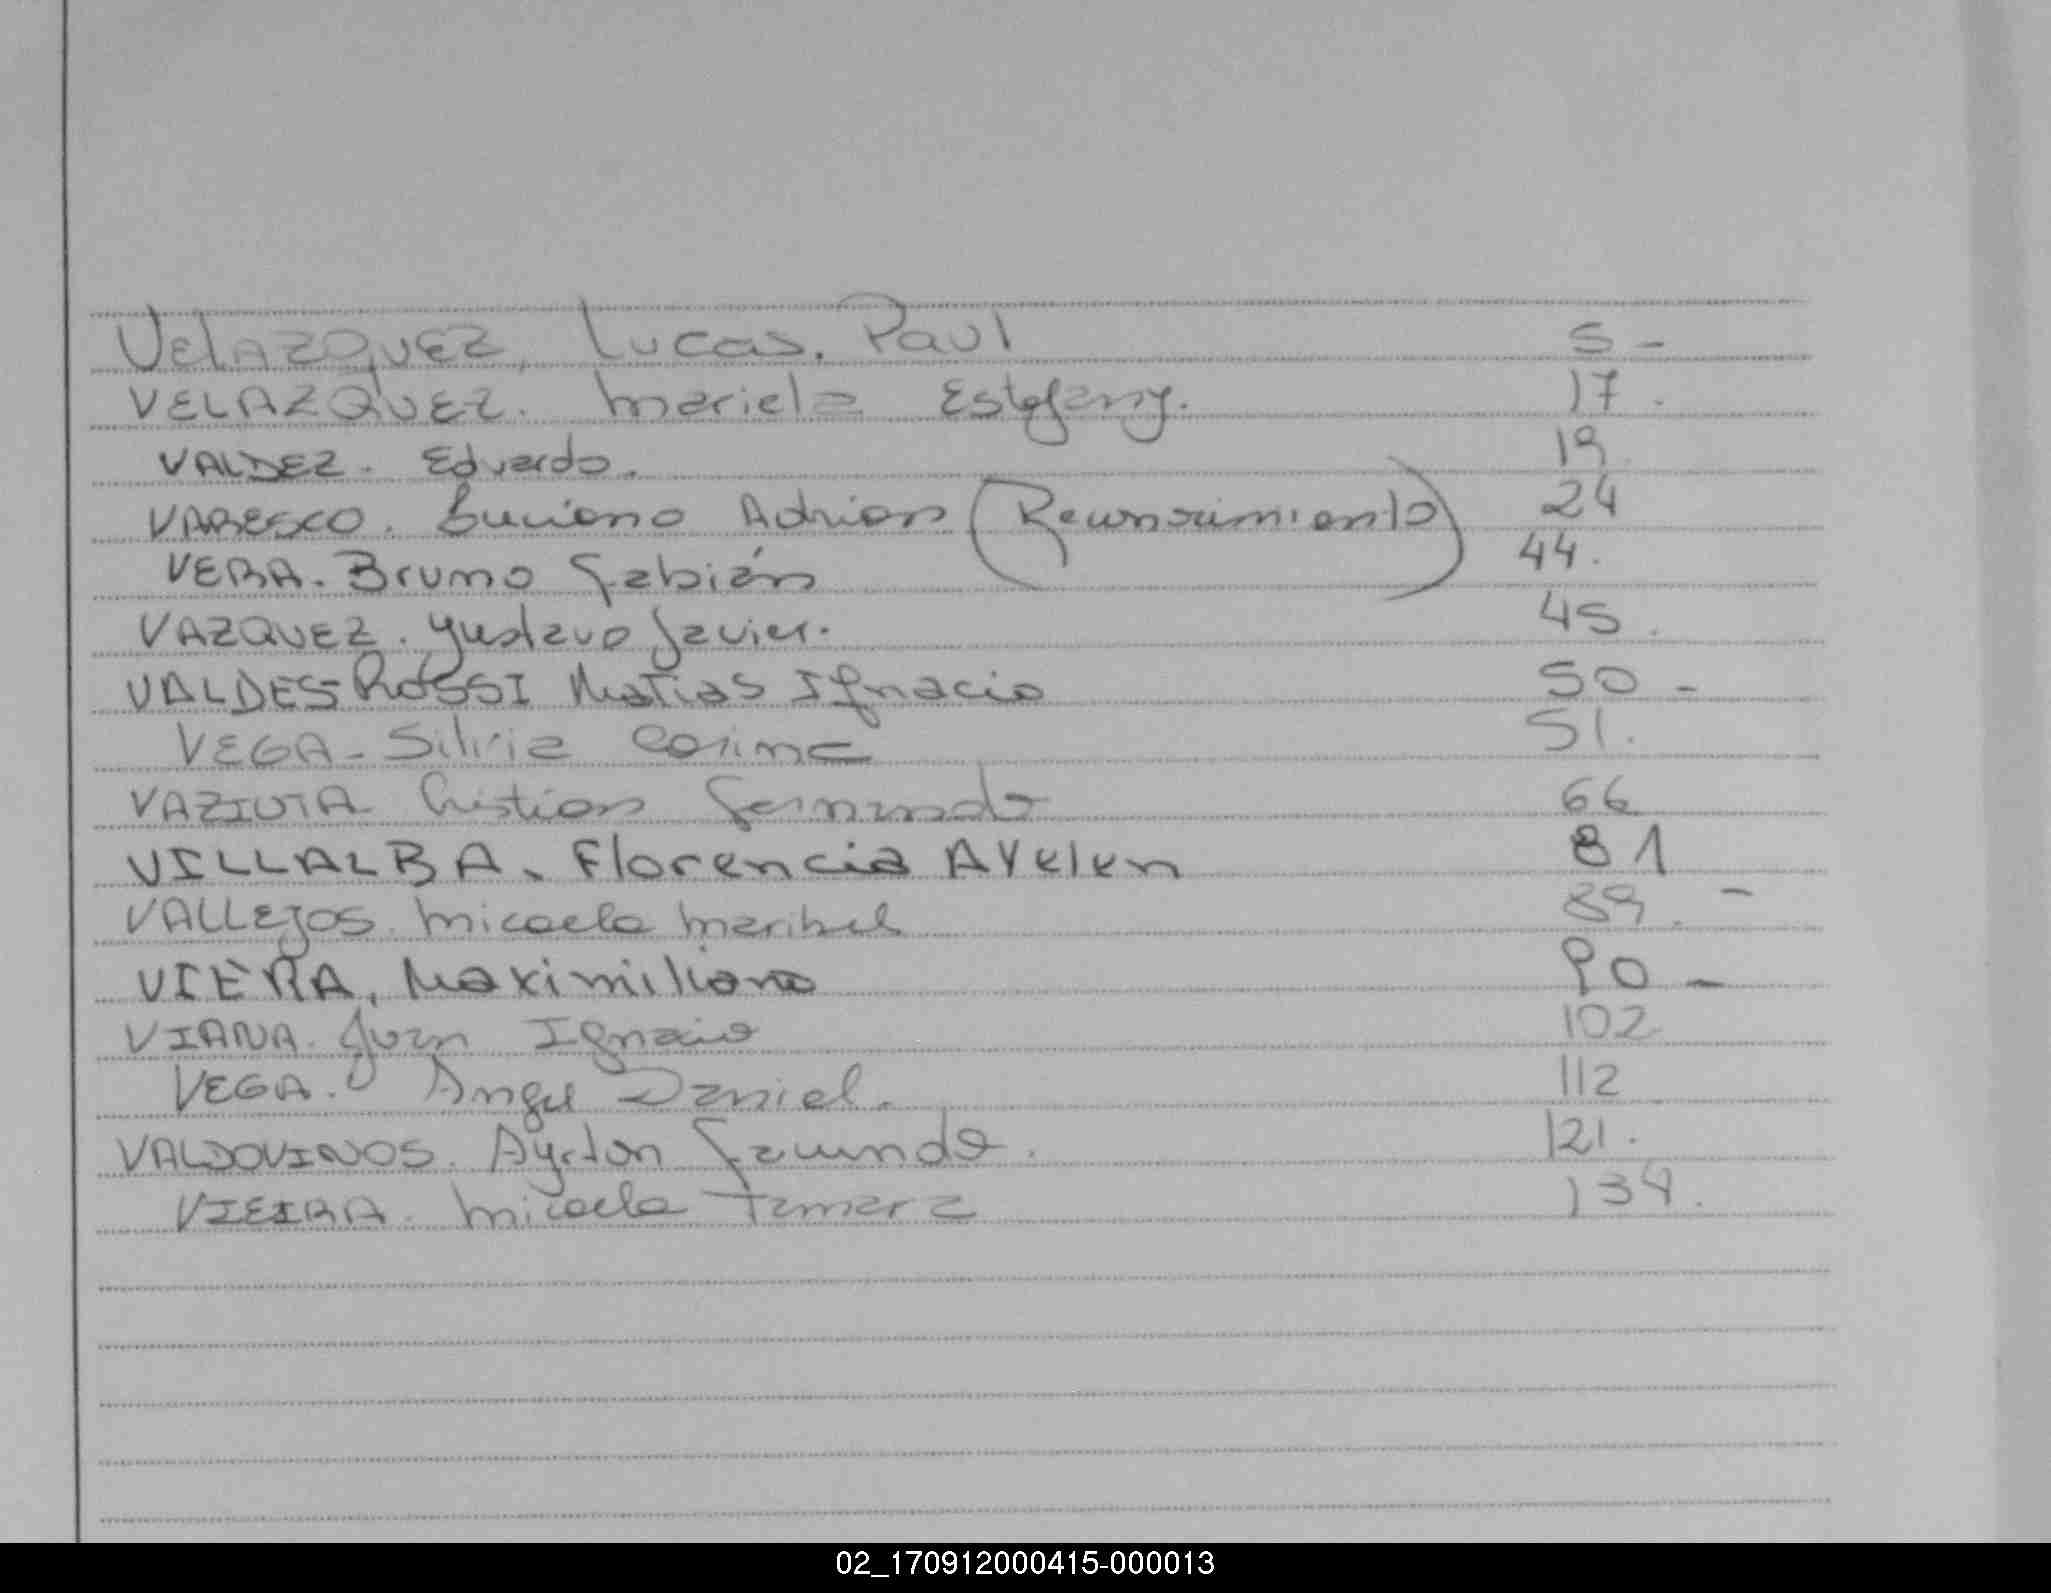 VELAZQUEZ, Lucas. Paul 5 -
VELAZQUEZ. Mariela Estefany. 17.
VALDEZ. Eduardo. 19
VARESCO. Luciano Adrian (Reconocimiento) 24
VERA. Bruno Fabián 44.
VAZQUEZ. Gustavo Javier. 45.
VALDES ROSSI Matias Ignacio 50 -
VEGA - Silvia Corina 51.
Cristian Fernando 66
VILLALBA. Florencia Ayelen 81
VALLEJOS. Micaela Maribel 89. -
VIERA, Maximiliano 90 -
VIANA. Juan Ignacio 102
VEGA. Angel Daniel. 112
VALDOVINOS. Ayrton Facundo. 121.
VIEIRA. Micaela Tamara 134.
02_170912000415-000013